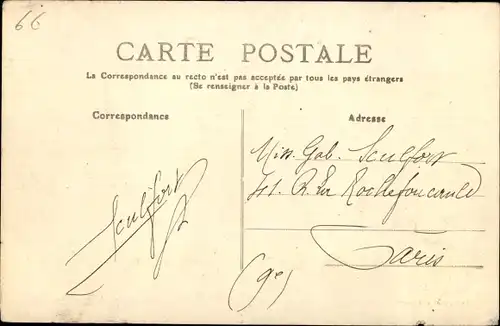 66
CARTE POSTALE
La Correspondance au recto n'est pas acceptée par tous les pays étrangers
(Se renseigner à la Poste)
Correspondance
Adresse
Miss. Gab. Seulfort
41. R. La Rochefoucauld
Paris
(9e)
Seulfort